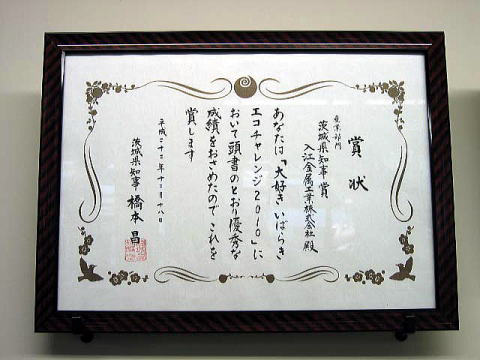 賞状
産業部門
茨城県知事賞
入江金属工業株式会社 殿
あなたは「大好き いばらき
エコチャレンジ2010」に
おいて頭書のとおり優秀な
成績をおさめたのでこれを
賞します
平成二十二年十二月十八日
茨城県知事 橋本 昌